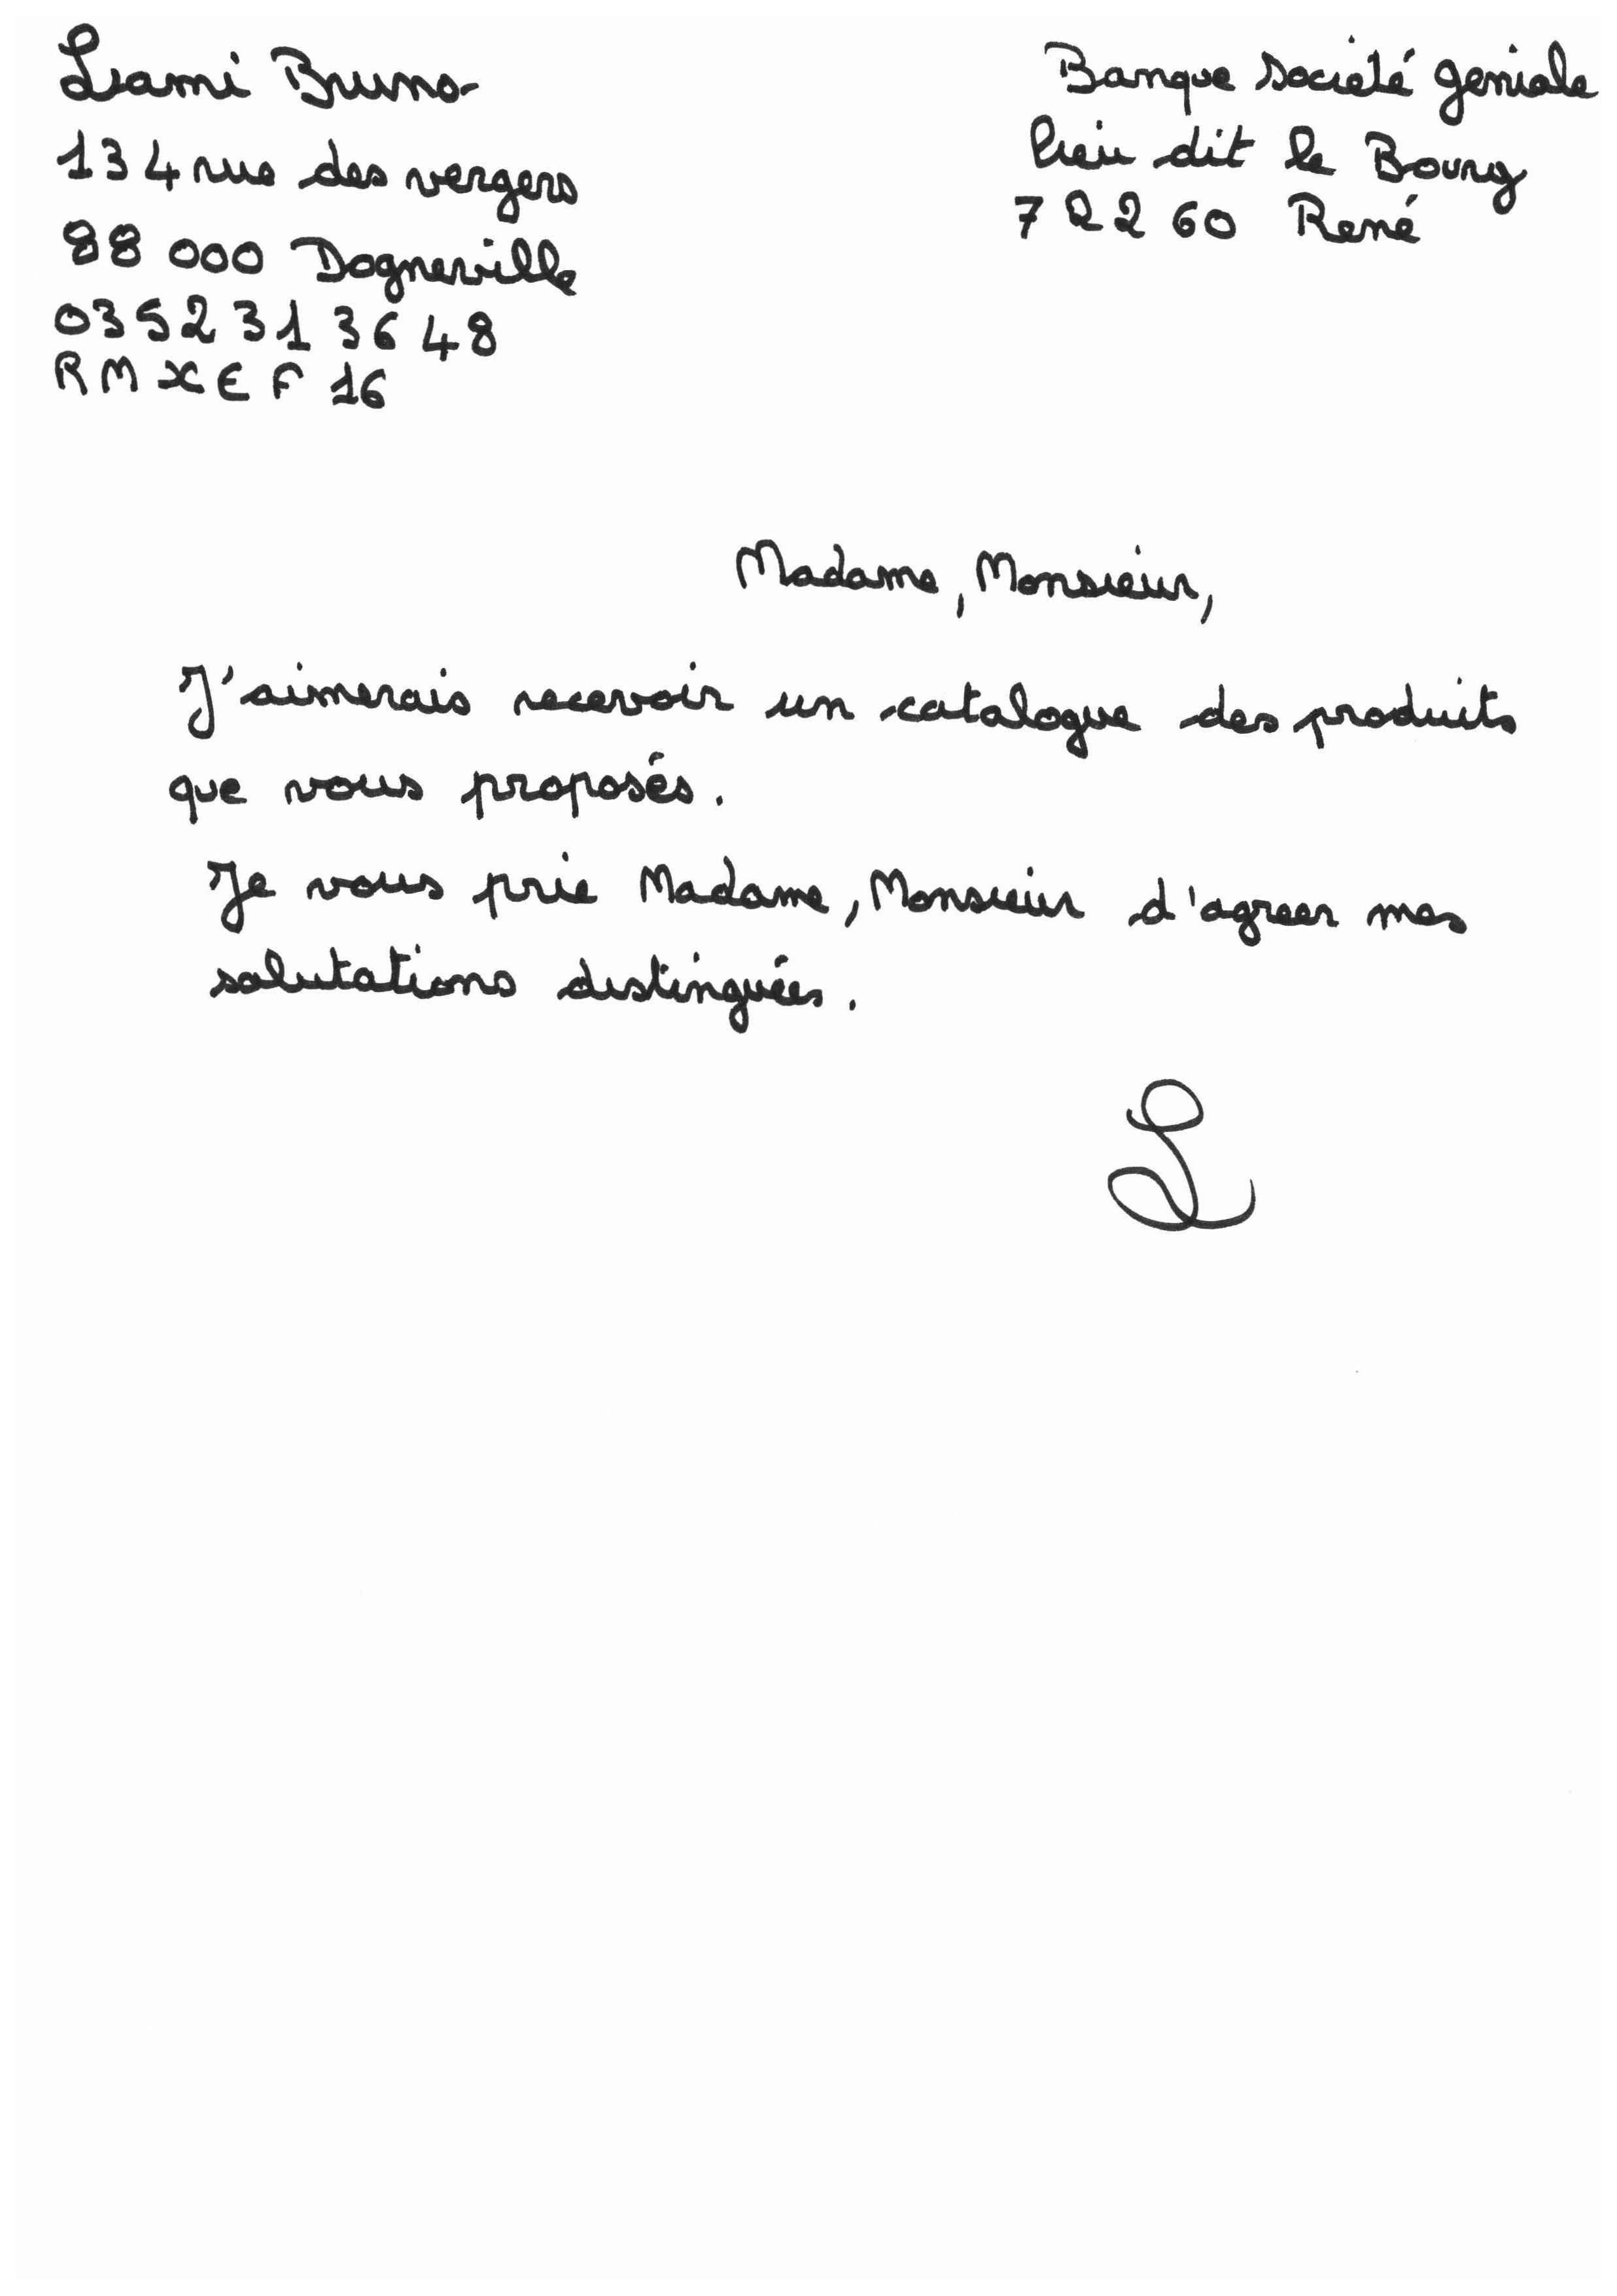 Lami Bruno
134 rue des vergers
88 000 Dogneville
03 52 31 36 48
RMXEF16
Banque société geniale
lieu dit le Bourg
72260 René
Madame, Monsieur,
J'aimerais recevoir un catalogue des produits
que vous proposés.
Je vous prie Madame, Monsieur d'agreer mes
salutations distinguées.